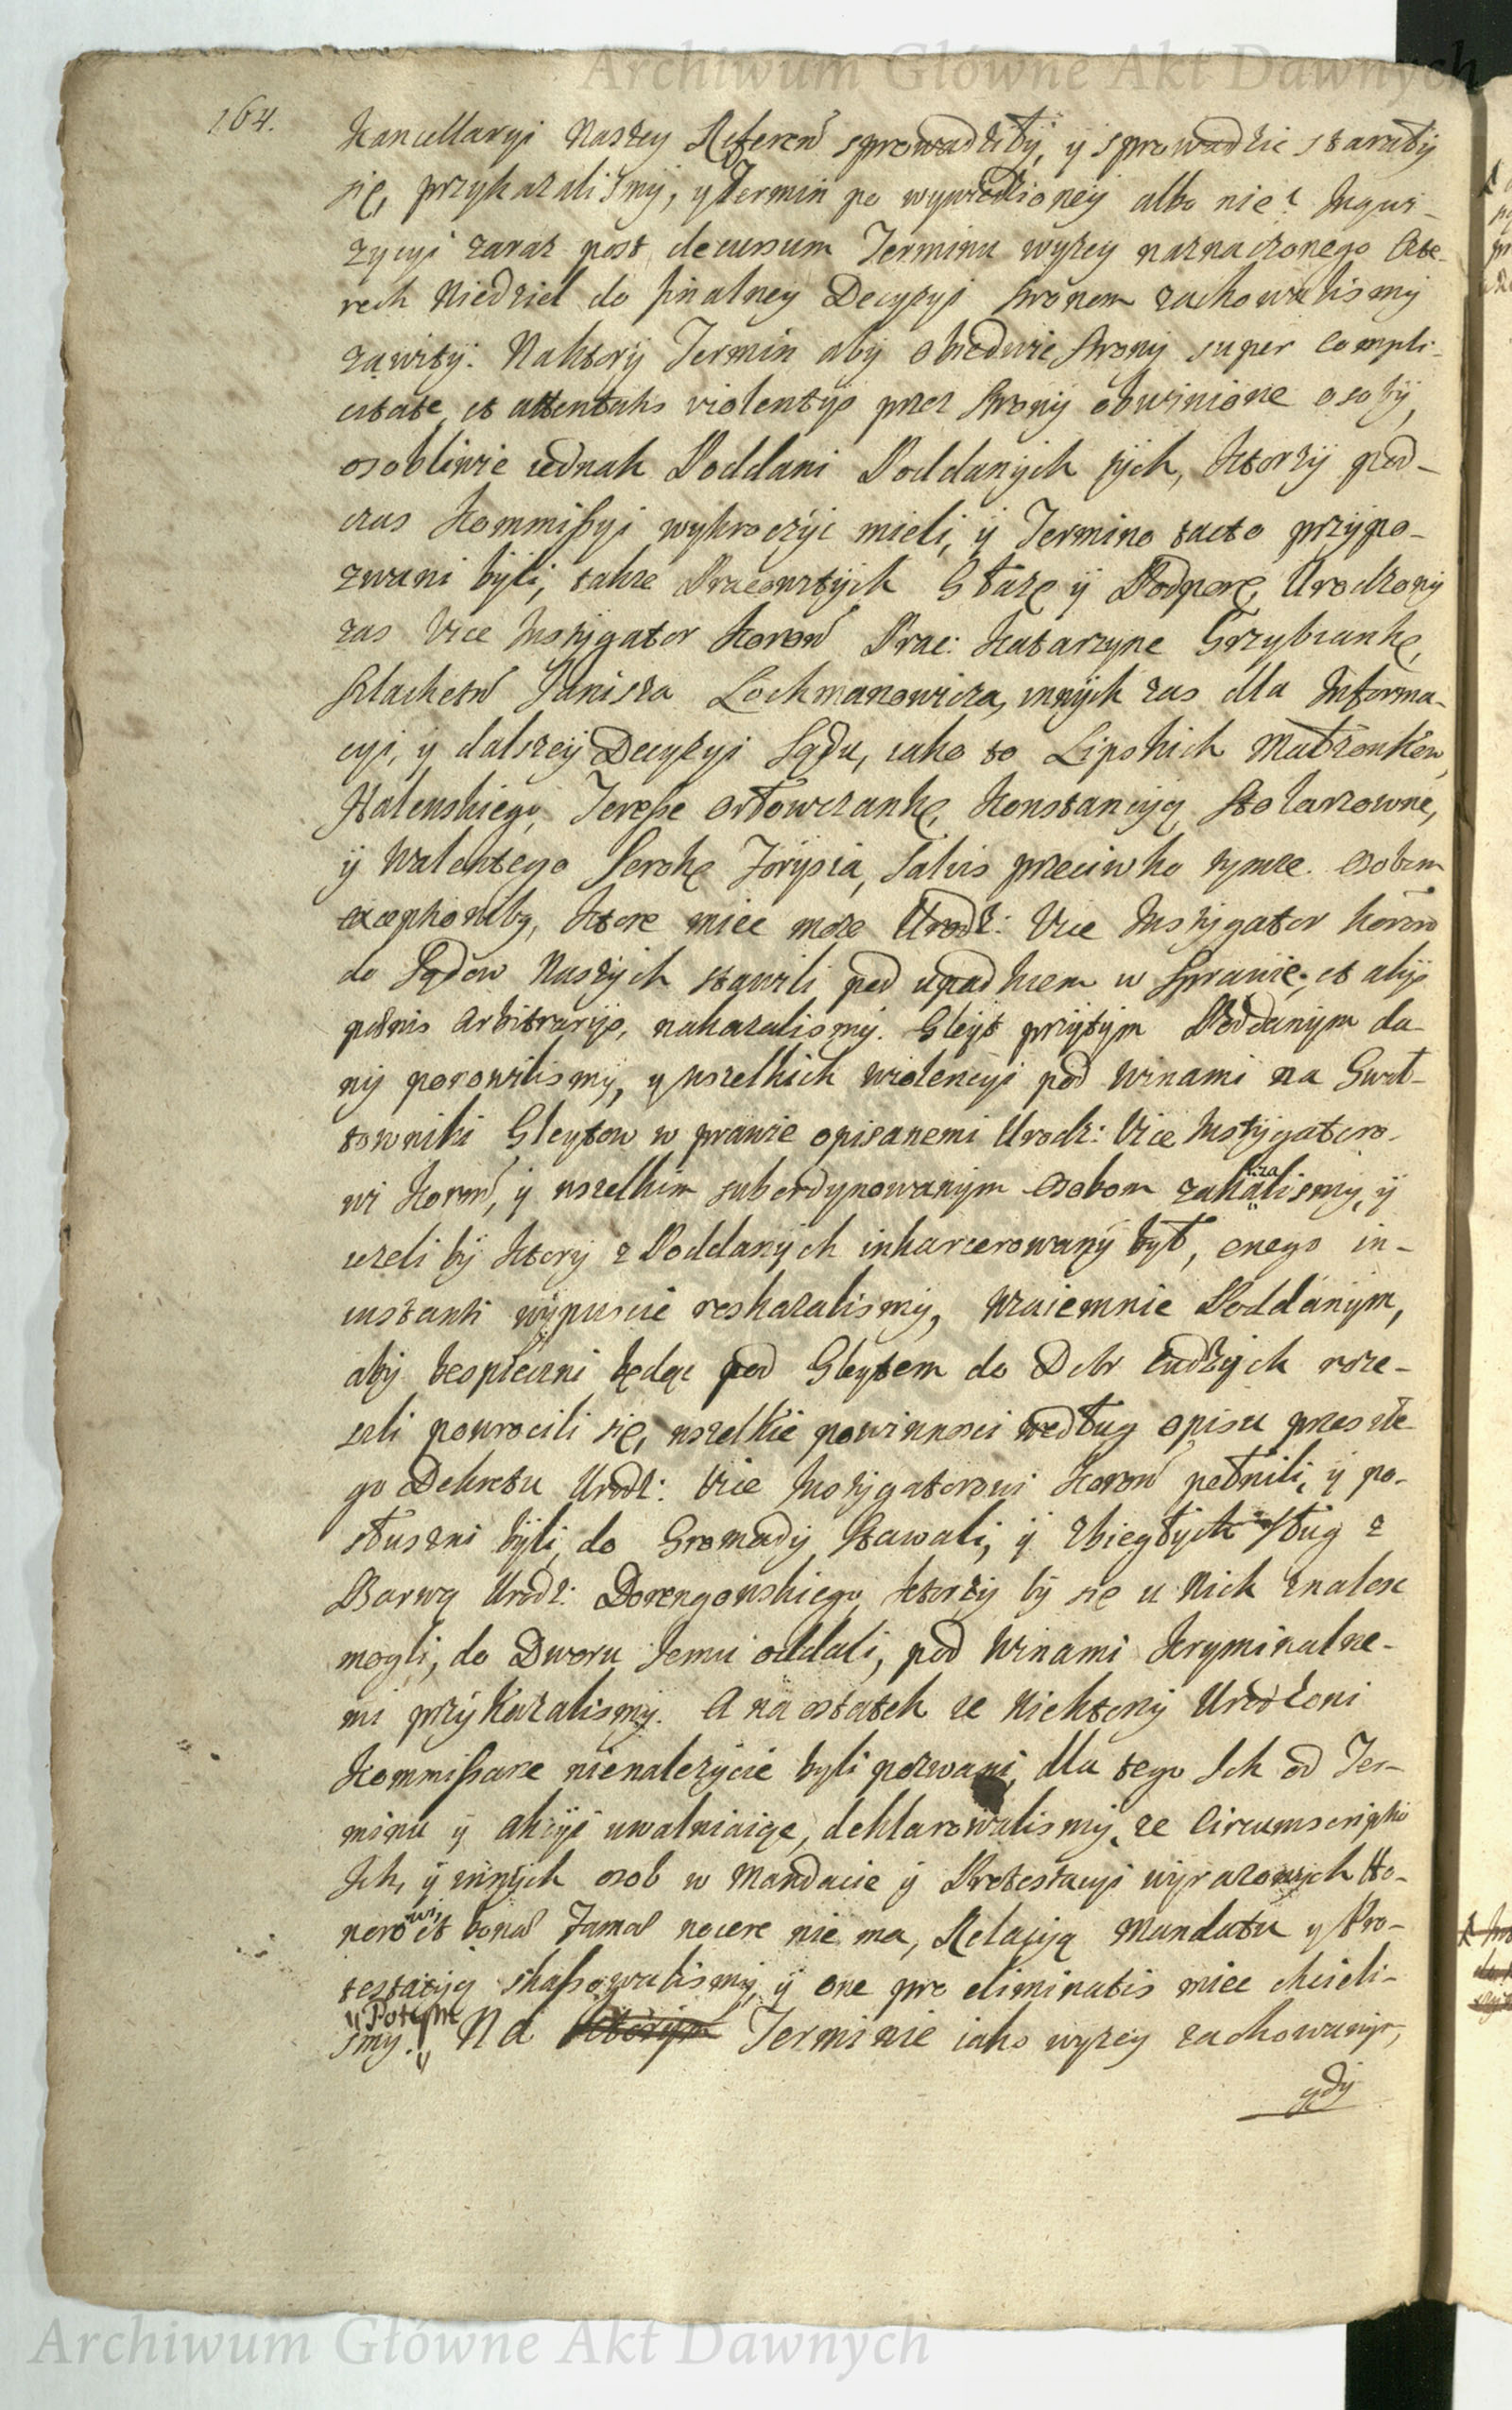 Archiwum Główne Akt Dawnych
164.
Kancellaryi Naszey Referen sprowadziły, y sprowadzic starały
się, przykazalismy, y Termin po wywiedzioney albo nie? Inqwi-
zycyi zaraz post decursum Terminu wyzey naznaczonego Czte-
rech Niedziel do finalney Decyzyi Stronom zachowalismy
zawity. Naktory Termin aby obiedwie Strony super compli-
citate et attentatis violentys przez Strony obwinione osoby,
osobliwie iednak Poddani Poddanych tych, ktorzy pod-
czas Kommissyi wykroczyc mieli, y Termino tacto przypo-
zwani byli, takze Pracowitych Stazę y Podporę, Urodzony
zas Vice Instygator Koron Prac: Katarzynę Grzybiankę,
Szlachetn Janisza Lochmanowicza, innych zas dla Informa-
cyi, y dalszey Decyzyi Sądu, iako to Lipskich Małzonkow,
Halenskiego, Teressę Orłowczankę, Konstancyą Stolarzownę,
y Walentego Serokę Forysia, salvis przeciwko tymze osobom
exceptionibq, ktore miec moze Urodz: Vice Instygator Koron
do Sądow Naszych stawili pod upadkiem w Sprawie, et alys
poenis Arbitrarys, nakazalismy. Gleyt przytym Poddanym da-
ny ponowilismy, y wszelkich wiolencyi pod winami na Gwał-
townikí Gleytow w prawie opisanemi Urodz: Vice Instygatoro-
wi Koron, y wszelkim subordynowanym Osobom zakazalismy, y
iezeli by ktory z Poddanych inkarcerowany był, onego in-
instanti wypuscic roskazalismy, wzaiemnie Poddanym,
aby bespieczni będąc pod Gleytem do Dobr cudzych roze-
szli powrocili się, wszelkie powinnosci według opisu przeszłe-
go Dekretu Urodz: Vice Instygatorowi Koron pełnili, y po-
słuszni byli, do Gromady stawali, y zbiegłych Sług z
Barwą Urodz: Dorengowskiego, ktorzy by się u Nich znalesc
mogli, do Dworu Jemu oddali, pod winami Kryminalne-
mi przykazalismy. A na ostatek ze Niektorzy Urodzoni
Kommissarze nienalezycie byli pozwani, dla tego Ich od Ter-
minu y akcyi uwalniaiąc, deklarowalismy, ze Circumscriptio
Ich, y innych osob w Mandacie y Protestacyi wyrazonych Ho-
norowi, et bonae Famae nocere nie ma, Relacyą Mandatu y Pro-
testacyą skassowalismy, y one pro eliminatis miec chcieli-
smy. Na Potym Terminie iako wyzey zachowanym,
gdy
Archiwum Główne Akt Dawnych